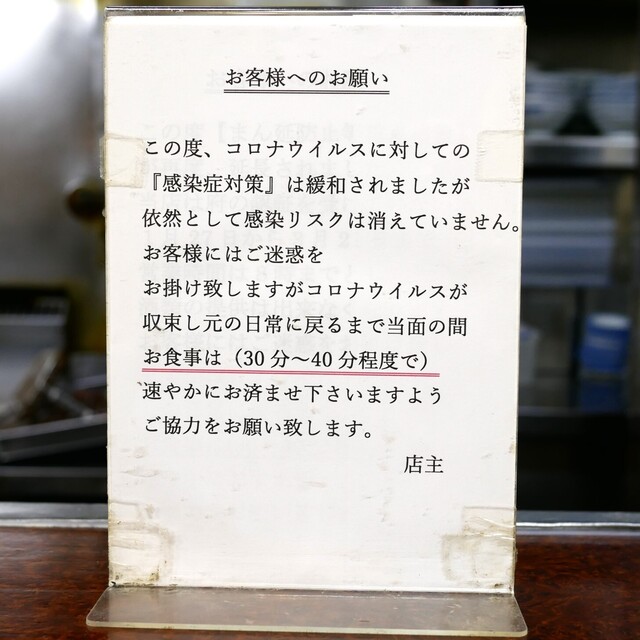 お客様へのお願い
この度、コロナウイルスに対しての
『感染症対策』は緩和されましたが
依然として感染リスクは消えていません。
お客様にはご迷惑を
お掛け致しますがコロナウイルスが
収束し元の日常に戻るまで当面の間
お食事は（30分～40分程度で）
速やかにお済ませ下さいますよう
ご協力をお願い致します。
店主